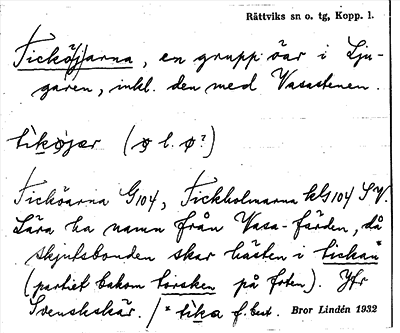 Rättviks sn o. tg, Kopp. l.
Tickö(j)arna, en grupp öar i Lju-
garen, inkl. den med Vasastenen.
tìkøjær (ø l. ø?)
Ticköarna G104, Tickholmarna hGs104 Sv.
Lära ha namn från Vasa-färden, då
skjutsbonden skar hästen i tickan*
(partiet bakom torsken på foten). Jfr
Svenskskär. /* tìka f. best. Bror Lindén 1932